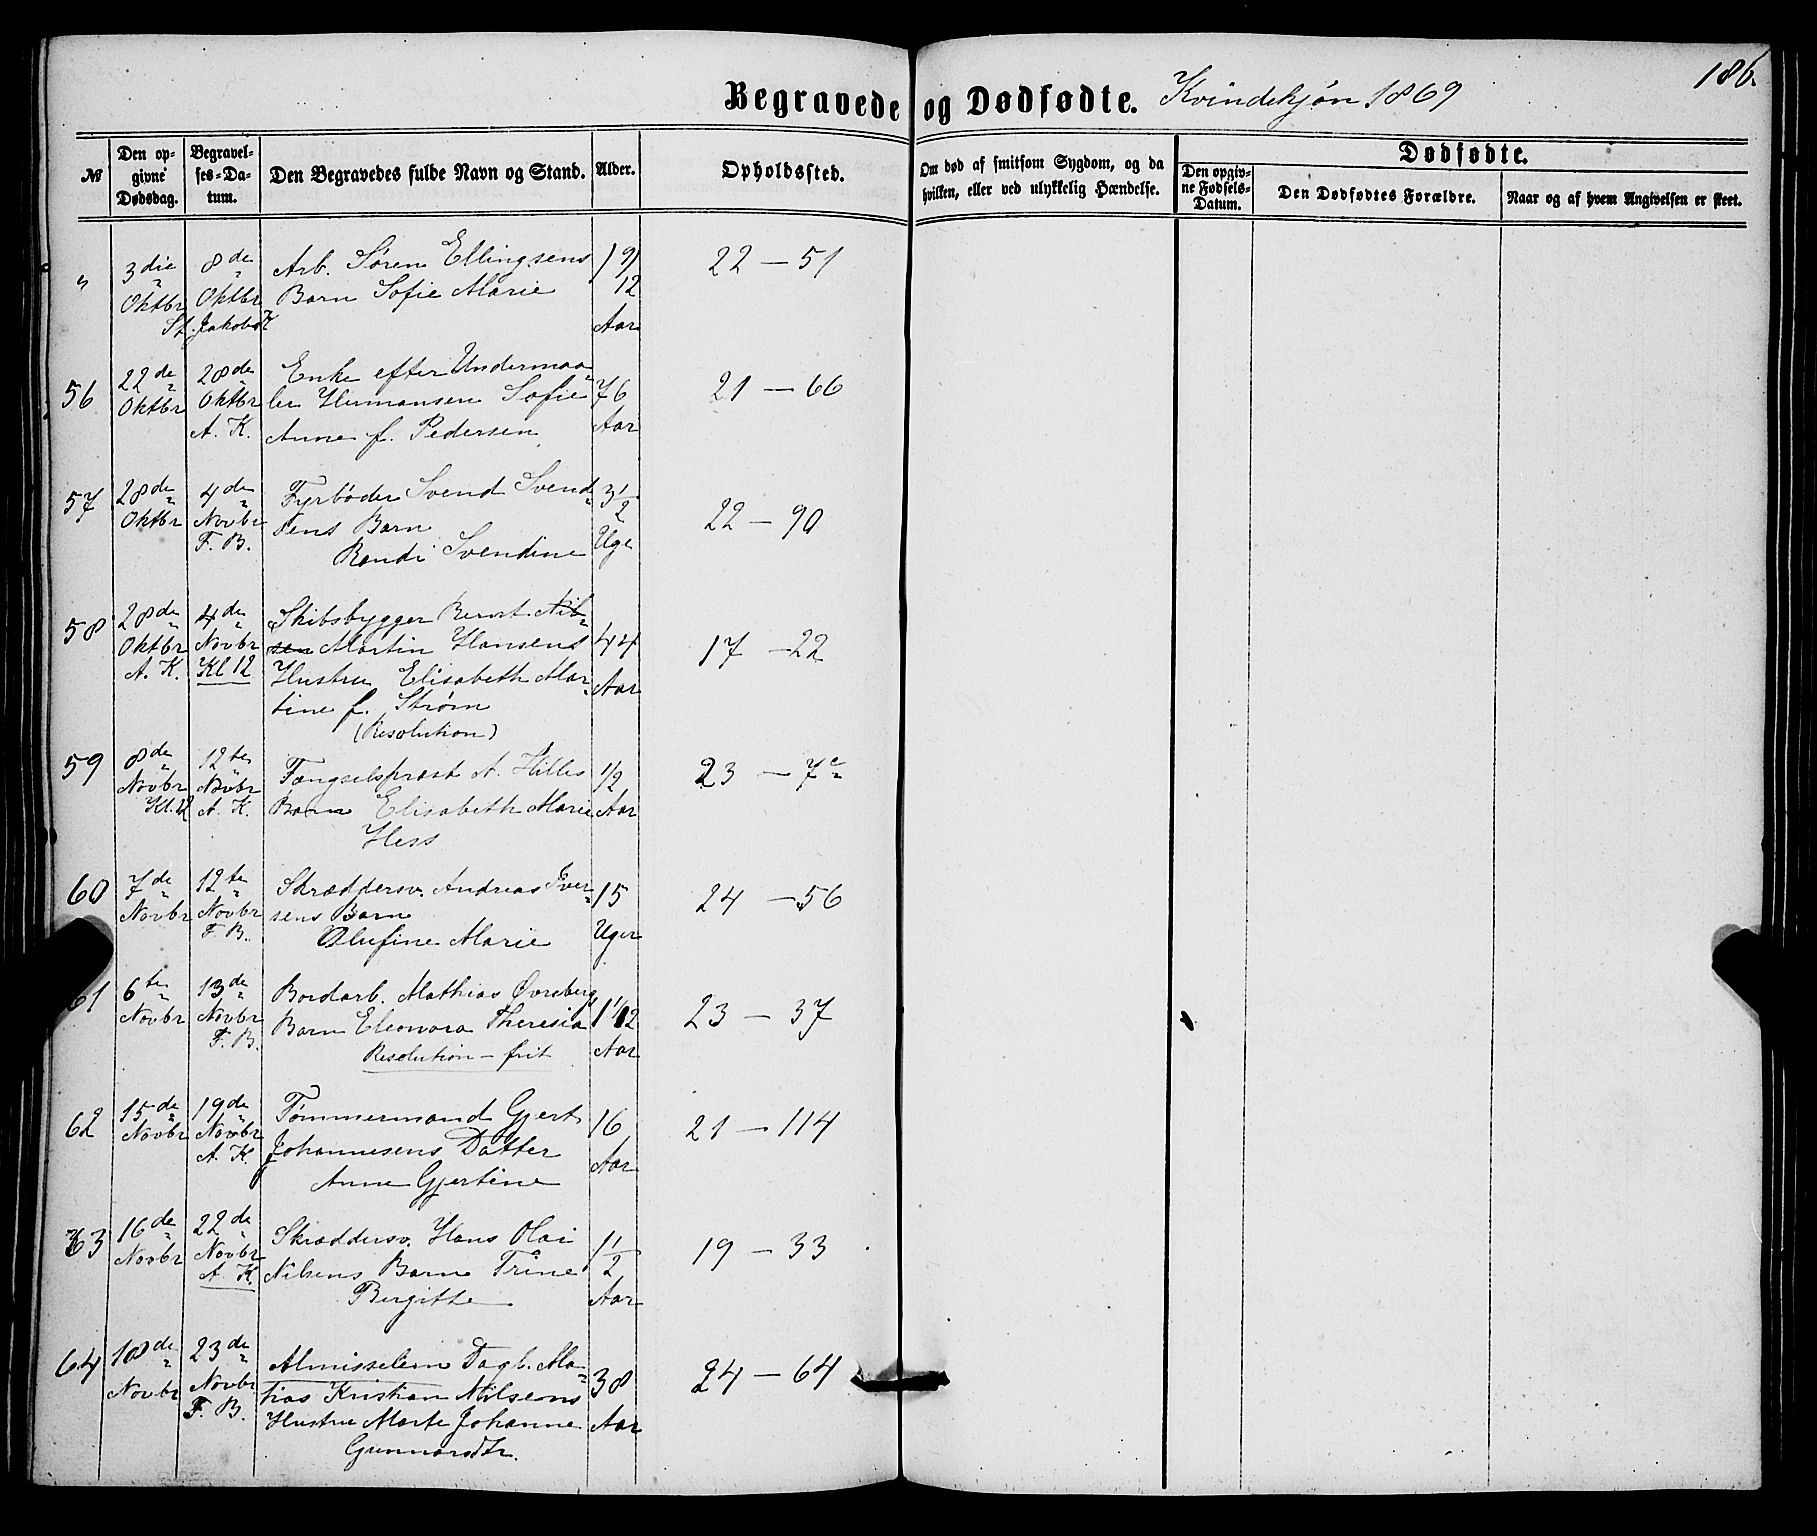 186.
Begravede og Dødfødte. Kvindekjøn 1869
№
Den op-
givne
Dødsdag.
Begravel-
ses-Da-
tum.
Den Begravedes fulde Navn og Stand.
Alder.
Opholdssted.
Om død af smitsom Sygdom, og da
hvilken, eller ved ulykkelig Hændelse.
Dødfødte.
Den opgiv-
ne Fødsels-
Datum.
Den Dødfødtes Forældre.
Naar og af hvem Angivelsen er skeet.
" 3die 8de Arb. Søren Ellingsens 1 9/ 22 — 51
Oktbr Oktbr Barn Sofie Marie 12
St. Jakobs K Aar
56 22de 28de Enke efter Undermaa- 76 21 — 66
Oktbr Oktbr ler Hermansen Sofie Aar
A. K. Anne f. Pedersen
57 28de 4de Fyrbøder Svend Svend- 3 1/2 22 — 90
Oktbr Novbr sens Barn Uge
F. B. Randi Svendine
58 28de 4de Skibsbygger Bernt Nil- 44 17 — 22
Oktbr Novbr sen Martin Hansens Aar
A. K. Kl 12 Hustru Elisabeth Mar-
tine f. Strøm
(Resolution)
59 8de 12te Fængselsprest A. Hilles 1/2 23 — 7c
Novbr Novbr Barn Elisabeth Marie Aar
Kl. 12 A. K. Hess
60 7de 12te Skræddersv. Andreas Iver- 15 24 — 56
Novbr Novbr sens Barn Uger
F. B. Olufine Marie
61 6te 13de Bordarb. Mathias Øvreberg 1 1/12 23 — 37
Novbr Novbr Barn Eleonora Theresia Aar
F. B. Resolution — frit
62 15de 19de Tømmermand Gjert 16 21 — 114
Novbr Novbr Johannesens Datter Aar
A. K. Anne Gjertine
63 16de 22de Skræddersv. Hans Olai 1 1/2 19 — 33
Novbr Novbr Nilsens Barn Trine Aar
A. K. Bergitte
64 18de 23de Almisselem Dagl. Ma- 38 24 — 64
Novbr Novbr tias Kristian Nilsens Aar
F. B. Hustru Marte Johanne
Gunnarsdtr.